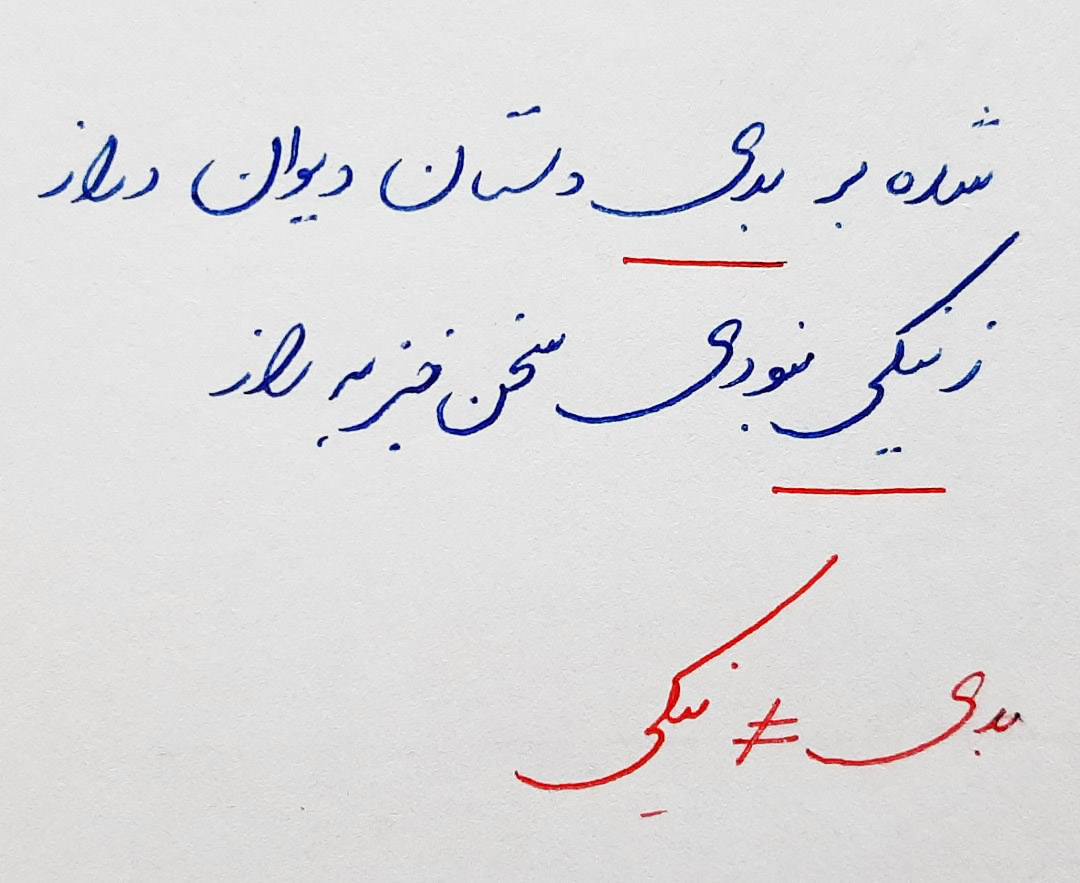 شده بر بدی دستان دیوان دراز
ز نیکی نبودی سخن جز به راز
بدی ≠ نیکی